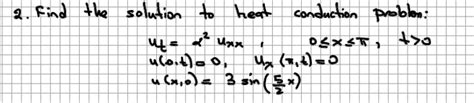 2. Find the solution to heat conduction problem:
u_t = α² u_xx , 0 ≤ x ≤ π , t>0
u(0,t) = 0, u_x (π,t) = 0
u(x,0) = 3 sin(5/2 x)